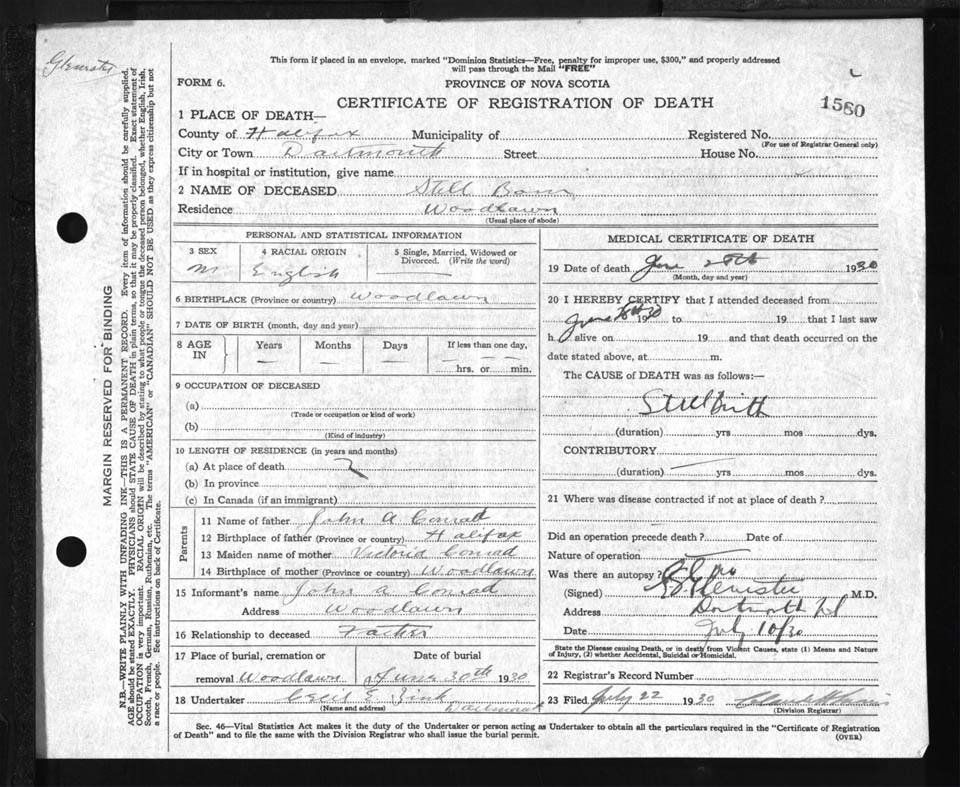 Glenister
This form if placed in an envelope, marked "Dominion Statistics—Free, penalty for improper use, $300," and properly addressed
will pass through the Mail "FREE"
FORM 6.
PROVINCE OF NOVA SCOTIA
CERTIFICATE OF REGISTRATION OF DEATH
1560
1 PLACE OF DEATH—
County of Halifax Municipality of Registered No.
(For use of Registrar General only)
City or Town Dartmouth Street House No.
If in hospital or institution, give name
2 NAME OF DECEASED Still Born
Residence Woodlawn
(Usual place of abode)
PERSONAL AND STATISTICAL INFORMATION
3 SEX 4 RACIAL ORIGIN 5 Single, Married, Widowed or
Divorced. (Write the word)
M English
6 BIRTHPLACE (Province or country) Woodlawn
7 DATE OF BIRTH (month, day and year)
8 AGE IN Years Months Days If less than one day,
hrs. or min.
9 OCCUPATION OF DECEASED
(a)
(Trade or occupation or kind of work)
(b)
(Kind of industry)
10 LENGTH OF RESIDENCE (in years and months)
(a) At place of death
(b) In province
(c) In Canada (if an immigrant)
Parents
11 Name of father John A Conrad
12 Birthplace of father (Province or country) Halifax
13 Maiden name of mother Victoria Conrad
14 Birthplace of mother (Province or country) Woodlawn
15 Informant's name John A Conrad
Address Woodlawn
16 Relationship to deceased Father
17 Place of burial, cremation or Date of burial
removal Woodlawn June 30th 1930
18 Undertaker Cecil E. Zink
(Name and address) Dartmouth
MEDICAL CERTIFICATE OF DEATH
19 Date of death June 1930
(Month, day and year)
20 I HEREBY CERTIFY that I attended deceased from
June 1930 to 19 that I last saw
h alive on 19 and that death occurred on the
date stated above, at m.
The CAUSE of DEATH was as follows:—
Still Birth
(duration) yrs mos dys.
CONTRIBUTORY
(duration) yrs mos dys.
21 Where was disease contracted if not at place of death?
Did an operation precede death? Date of
Nature of operation
Was there an autopsy? no
(Signed) Glenister M.D.
Address Dartmouth NS
Date July 10/30
State the Disease causing Death, or in death from Violent Causes, state (1) Means and Nature
of Injury, (2) whether Accidental, Suicidal or Homicidal.
22 Registrar's Record Number
23 Filed July 22 1930
(Division Registrar)
Sec. 46—Vital Statistics Act makes it the duty of the Undertaker or person acting as Undertaker to obtain all the particulars required in the "Certificate of Registration
of Death" and to file the same with the Division Registrar who shall issue the burial permit.
(OVER)
MARGIN RESERVED FOR BINDING
N.B.—WRITE PLAINLY WITH UNFADING INK—THIS IS A PERMANENT RECORD. Every item of information should be carefully supplied.
AGE should be stated EXACTLY. PHYSICIANS should STATE CAUSE OF DEATH in plain terms, so that it may be properly classified. Exact statement of
OCCUPATION is very important. RACIAL ORIGIN will be described by stating to what people or tongue the deceased person belonged, whether English, Irish,
Scotch, French, German, Russian, Ruthenian, etc. The terms "AMERICAN" or "CANADIAN" SHOULD NOT BE USED as they express citizenship but not
a race or people. See instructions on back of Certificate.